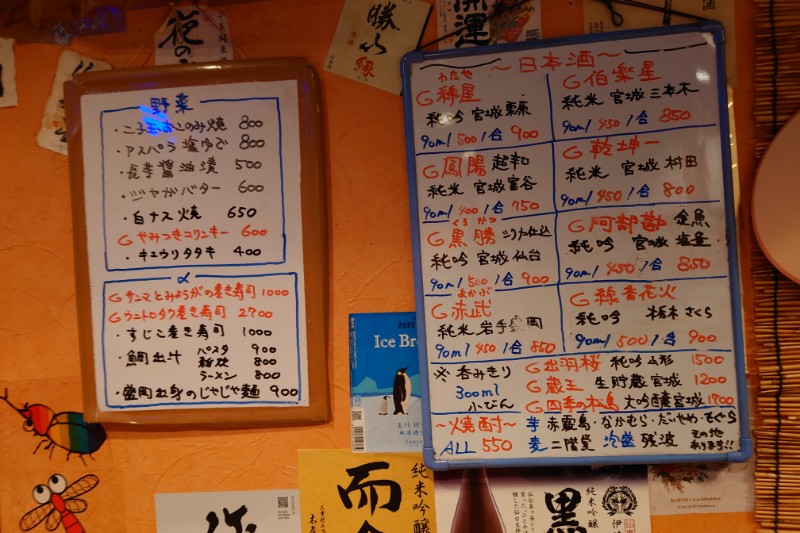 野菜
・アスパラ塩ゆで 800
・長芋醤油漬 500
・ジャがバター 600
・白ナス焼 650
Gやみつきコリンキー 600
・キュウリタタキ 400
〆
Gサンマとみょうがの巻き寿司 1000
Gウニトロタク巻き寿司 2900
・すじこ巻き寿司 1000
・鯛出汁 パスタ 900
雑炊 800
ラーメン 800
・盛岡出身のじゃじゃ麺 900
～日本酒～
わたや
G綿屋
純吟 宮城 栗原
90ml 500 1合 900
G伯楽星
純米 宮城 三本木
90ml 450 1合 850
G鳳陽 超辛
純米 宮城 富谷
90ml 400 1合 750
G乾坤一
純米 宮城 村田
90ml 450 1合 800
くろかつ
G黒勝 シリカ仕込
純吟 宮城 仙台
90ml 500 1合 900
G阿部勘 金魚
純吟 宮城 塩釜
90ml 450 1合 850
あかぶ
G赤武
純米 岩手 盛岡
90ml 450 1合 850
G線香花火
純吟 栃木 さくら
90ml 500 1合 900
冬 呑みきり
300ml
小びん
G出羽桜 純吟 山形 1500
G蔵王 生貯蔵 宮城 1200
G四季の松島 大吟醸 宮城 1900
～焼酎～
ALL 550
芋 赤霧島・なかむら・だいやめ・もぐら
麦 二階堂 泡盛 残波
その他あります!!
開運
2022
Ice Br
而
純米吟醸
黒
純米吟醸